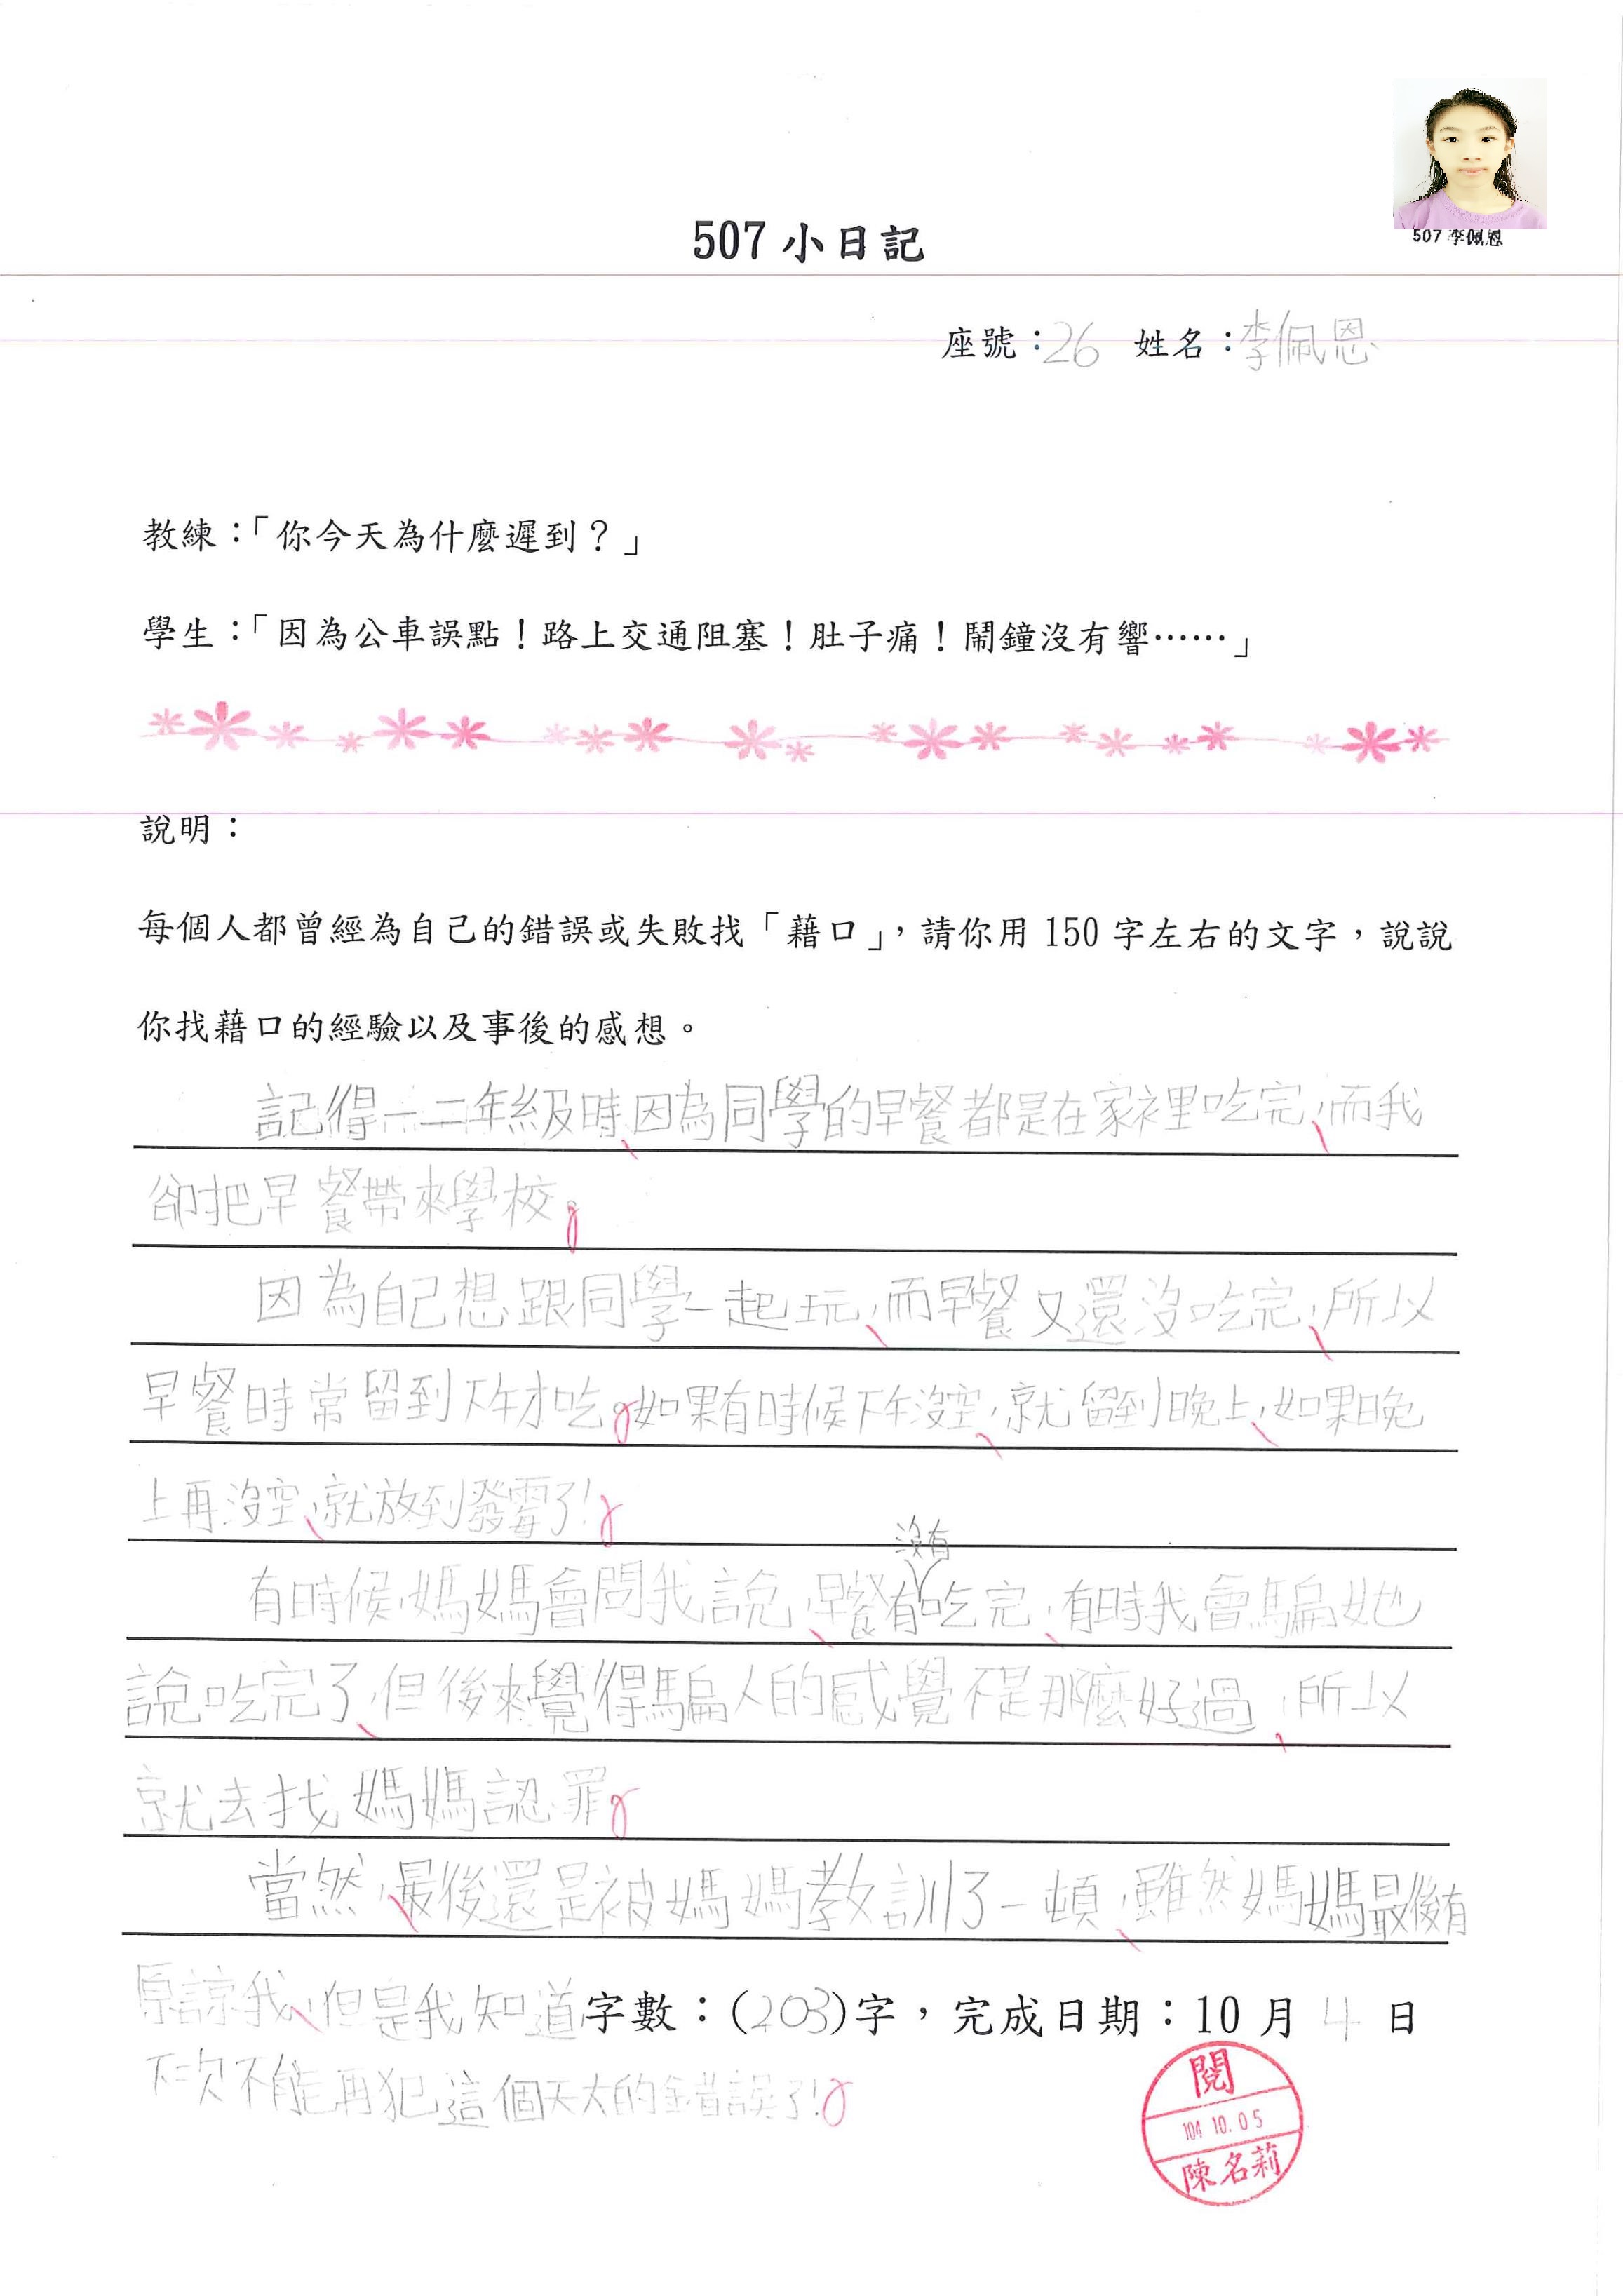 507 李佩恩
507 小日記
座號：26 姓名：李佩恩
教練：「你今天為什麼遲到？」
學生：「因為公車誤點！路上交通阻塞！肚子痛！鬧鐘沒有響……」
說明：
每個人都曾經為自己的錯誤或失敗找「藉口」，請你用 150 字左右的文字，說說
你找藉口的經驗以及事後的感想。
記得一二年級時，因為同學的早餐都是在家裡吃完，而我
卻把早餐帶來學校。
因為自己想跟同學一起玩，而早餐又還沒吃完，所以
早餐時常留到下午才吃。如果有時候下午沒空，就留到晚上，如果晚
上再沒空，就放到發霉了！
沒有
有時候，媽媽會問我說，早餐有吃完，有時我會騙她
說吃完了，但後來覺得騙人的感覺不是那麼好過，所以
就去找媽媽認罪。
當然，最後還是被媽媽教訓了一頓，雖然媽媽最後有
原諒我，但是我知道字數：(203)字，完成日期：10 月 4 日
下次不能再犯這個天大的錯誤了！
閱
104.10.05
陳名莉